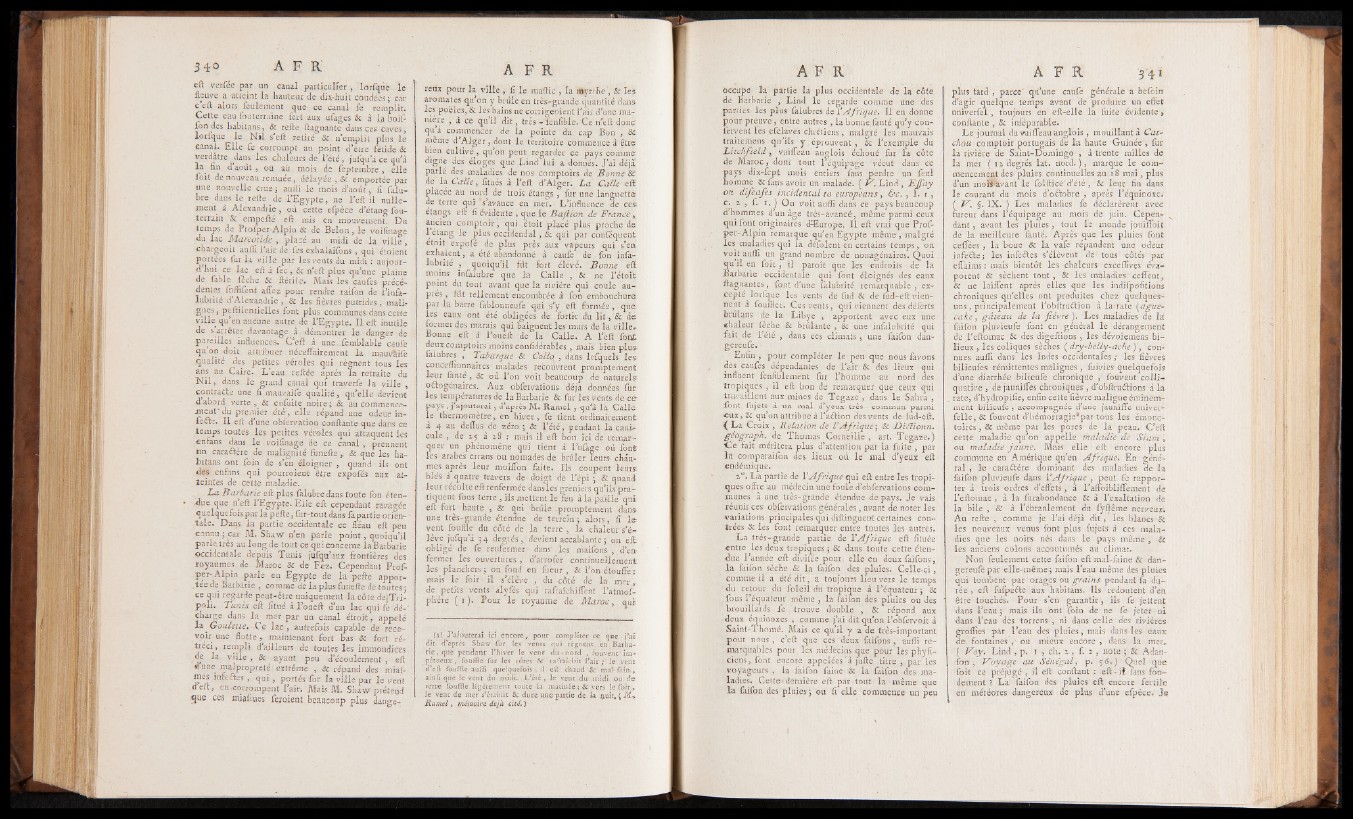 340 A F R
est versée par un canal particulier, lorsque le
fleuve a atteint la hauteur de dix-huit coudées; car
c'est alors seulement que ce canal se remplit.
Cette eau souterraine sert aux usages & à la boisson
des habitans, & reste stagnante dans ces caves,
lorsque le Nil s'est retiré & n'emplit plus le
canal. Elle se corrompt au point d'être fétide &
verdâtre dans les chaleurs de l'été, jusqu'à ce qu'à
la fin d'août, ou au mois de septembre, elle
soit de nouveau remuée, délayée, & emportée par
une nouvelle crue; aussi le mois d'août, si salubre
dans le reste de l'Egypte, ne l'est-il nullement
à Alexandrie, où cette espèce d'étang souterrain
& empesté est mis en mouvement. Du
temps de Prosper-Alpin & de Belon, le voisinage
du lac Maréotide, placé au midi de la ville,
chargeoit aussi l'air de ses exhalaisons, qui étoient
portées sur la ville par les vents du midi: aujourd'hui
ce lac est à sec, & n'est plus qu'une plaine
de sable sèche & stérile. Mais les causes précédentes
suffisent assez pour rendre raison de l'insalubrité
d'Alexandrie, & les fièvres putrides, malignes,
pestilentielles sont plus communes dans cette
ville qu'en aucune autre de l'Egypte. Il est inutile
de s'arrêter davantage à démontrer le danger de
pareilles influences. C'est à une semblable cause
qu'on doit attribuer nécessairement la mauvaise
qualité des petites véroles qui règnent tous les
ans au Caire. L'eau restée après la retraite du
Nil, dans le grand canal qui traverse la ville,
contracte une si mauvaise qualité, qu'elle devient
d'abord verte, & ensuite noire; & au commencement
du premier été, elle répand une odeur infecte.
Il est d'une observation constante que dans ce
temps toutes les petites véroles qui attaquent les
enfans dans le voisinage de ce canal, prennent
un caractère de malignité funeste, & que les habitans
ont soin de s'en éloigner, quand ils ont
des enfans qui pourroient être exposés aux atteintes
de cette maladie.
La Barbarie est plus salubre dans toute son étendue
que n'est l'Egypte. Elle est cependant ravagée
quelquefois par la peste, sur-tout dans sa partie orientale.
Dans la partie occidentale ce fléau est peu
connu; car M. Shaw n'en parle point, quoiqu'il
parle très au long de tout ce qui concerne la Barbarie
occidentale depuis Tunis jusqu'aux frontières des
royaumes de Maroc & de Fez. Cependant Prosper-Alpin
parle en Egypte de la peste apportée
de Barbarie, comme de la plus funeste de toutes;
ce qui regarde peut-être uniquement la côte de Tripoli.
Tunis est situé à l'ouest d'un lac qui se décharge
dans la mer par un canal étroit, appelé
la Goulette. Ce lac, autrefois capable de recevoir
une flotte, maintenant fort bas & fort rétréci,
rempli d'ailleurs de toutes les immondices
de la ville, & ayant peu d'écoulement, est
d'une malpropreté extrême, & répand des miasmes
infectes, qui, portés sur la ville par le vent
d'est, en corrompent l'air. Mais M. Shaw prétend
que ces miasmes seroient beaucoup plus dange-
A F R
reux pour la ville, si le mastic, la myrrhe, & les
aromates qu'on y brûle en très-grande quantité dans
les poëles, & les bains ne corrigeoient l'air d'une manière,
à ce qu'il dit, très-sensible. Ce n'est donc
qu'à commencer de la pointe du cap Bon, &
même d'Alger, dont le territoire commence à être
bien cultivé, qu'on peut regarder ce pays comme
digne des éloges que Lind lui a donnés. J'ai déjà
parlé des maladies de nos comptoirs de Bonne &
de la Calle, situés à l'est d'Alger. La Calle est
placée au nord de trois étangs, sur une languette
de terre qui s'avance en mer. L'influence de ces
étangs est si évidente, que le Bastion de France,
ancien comptoir, qui étoit placé plus proche de
l'étang le plus occidental, & qui par conséquent
étoit exposé de plus près aux vapeurs qui s'en
exhalent, a été abandonné à cause de son insalubrité,
quoiqu'il fût fort élevé. Bonne est
moins insalubre que la Calle, & ne l'étoit
point du tout avant que la rivière qui coule auprès,
fût tellement encombrée à son embouchure
par la barre sablonneuse qui s'y est formée, que
les eaux ont été obligées de sortir du lit, & de
former des marais qui baignent les murs de la ville.
Bonne est à l'ouest de la Calle. A l'est sont
deux comptoirs moins considérables, mais bien plus
salubres, Tabarque & Collo, dans lesquels les
concessionnaires malades recouvrent promptement
leur santé, & où l'on voit beaucoup de naturels
octogénaires. Aux observations déjà données sur
les températures de la Barbarie & sur les vents de ce
pays, j'ajouterai, d'après M. Ramel, qu'à la Calle
le thermomètre, en hiver, se tient ordinairement
à 4 au dessus de zéro; & l'été, pendant la canicule,
de 25 à 28: mais il est bon ici de remarquer
un phénomène qui tient à l'usage où sont
les arabes errans ou nomades de brûler leurs chaumes
après leur moisson faite. Ils coupent leurs
blés à quatre travers de doigt de l'épi; & quand
leur récolte est renfermée dans les greniers qu'ils pratiquent
sous terre, ils mettent le feu à la paille qui
est fort haute, & qui brûle promptement dans
une très-grande étendue de terrein; alors, si le
vent souffle du côté de la terre, la chaleur s'élève
jusqu'à 34 degrés, devient accablante; on est
obligé de se renfermer dans les maisons, d'en
fermer les ouvertures, d'arroser continuellement
les planchers; on fond en sueur, & l'on étouffe;
mais le soir il s'élève, du côté de la mer,
de petits vents alysés qui rafraîchissent l'atmosphère
(1). Pour le royaume de Maroc, qui
(1) J'ajouterai ici encore, pour compléter ce que j'ai
dit d'après Shaw sur les vents qui règnent en Barbarie,
que pendant l'hiver le vent du nord, souvent impétueux,
souffle sur les côtes & rafraîchit l'air; le vent
d'est souffle aussi quelquefois, il est chaud & mal-sain,
ainsi que le vent du midi. L'été, le vent du midi ou de
terre souffle légèrement toute la matinée; & vers le soir,
le vent de mer s'établit & dure une partie de la nuit. (M.
Ramel, mémoire déjà cité.)
A F R
occupe la partie la plus occidentale de la côte
de Barbarie, Lind le regarde comme une des
parties les plus salubres de l'Afrique. Il en donne
pour preuve, entre autres, la bonne santé qu'y conservent
les esclaves chrétiens, malgré les mauvais
traitemens qu'ils y éprouvent, & l'exemple du
Litchfield, vaisseau anglois échoué sur la côte
de Maroc, dont tout l'équipage vécut dans ce
pays dix-sept mois entiers sans perdre un seul
homme & sans avoir un malade. (V. Lind, Essay
on diseases incidental to europeans, &c., p. 1,
c. 2, s. 1.) On voit aussi dans ce pays beaucoup
d'hommes d'un âge très-avancé, même parmi ceux
qui sont originaires d'Europe. Il est vrai que Prosper-Alpin
remarque qu'en Egypte même, malgré
les maladies qui la désolent en certains temps, on
voit aussi un grand nombre de nonagénaires. Quoi
qu'il en soit, il paroît que les endroits de la
Barbarie occidentale qui sont éloignés des eaux
stagnantes, sont d'une salubrité remarquable, excepté
lorsque les vents de sud & de sud-est viennent
à souffler. Ces vents, qui viennent des déserts
brûlans de la Libye, apportent avec eux une
chaleur sèche & brûlante, & une insalubrité qui
fait de l'été, dans ces climats, une saison dangereuse.
Enfin, pour compléter le peu que nous savons
des causes dépendantes de l'air & des lieux qui
influent sensiblement sur l'homme au nord des
tropiques, il est bon de remarquer que ceux qui
travaillent aux mines de Tegaze, dans le Sahra,
sont sujets à un mal d'yeux très commun parmi
eux, & qu'on attribue à l'action des vents de sud-est.
(La Croix, Relation de l'Afrique; & Dictionn.
géograph. de Thomas Corneille, art. Tegaze.)
Ce fait méritera plus d'attention par la suite, par
la comparaison des lieux où le mal d'yeux est
endémique.
2°. La partie de l'Afrique qui est entre les tropiques
offre au médecin une foule d'observations communes
à une très-grande étendue de pays. Je vais
réunir ces observations générales, avant de noter les
variations principales qui distinguent certaines contrées
& les font remarquer entre toutes les autres.
La très-grande partie de l'Afrique est située
entre les deux tropiques; & dans toute cette étendue
l'année est divisée pour elle en deux saisons,
la saison sèche & la saison des pluies. Celle-ci,
comme il a été dit, a toujours lieu vers le temps
du retour du soleil du tropique à l'équateur; &
sous l'équateur même, la saison des pluies ou des
brouillards se trouve double, & répond aux
deux équinoxes, comme j'ai dit qu'on l'observoit à
Saint-Thomé. Mais ce qu'il y a de très-important
pour nous, c'est que ces deux saisons, aussi remarquables
pour les médecins que pour les physiciens,
sont encore appelées à juste titre, par les
voyageurs, la saison saine & la saison des maladies.
Cette dernière est par tout la même que
la saison des pluies; ou si elle commence un peu
A F R 341
plus tard, parce qu'une cause générale a besoin
d'agir quelque temps avant de produire un effet
universel, toujours en est-elle la suite évidente,
constante, & inséparable.
Le journal du vaisseau anglois, mouillant à Catchou
comptoir portugais de la haute Guinée, sur
la rivière de Saint-Domingo, à trente milles de
la mer (12 degrés lat. nord.), marque le commencement
des pluies continuelles au 28 mai, plus
d'un mois avant le solstice d'été, & leur fin dans
le courant du mois d'octobre, après l'équinoxe.
(V. §. IX.) Les maladies se déclarèrent avec
fureur dans l'équipage au mois de juin. Cependant,
avant les pluies, tout le monde jouissoit
de la meilleure santé. Après que les pluies sont
cessées, la boue & la vase répandent une odeur
infecte; les insectes s'élèvent de tous côtés par
essaims: mais bientôt les chaleurs excessives évaporent
& sèchent tout, & les maladies cessent,
& ne laissent après elles que les indispositions
chroniques qu'elles ont produites chez quelques-uns,
principalement l'obstruction à la rate (agues-cake,
gâteau de la fièvre). Les maladies de la
saison pluvieuse sont en général le dérangement
de l'estomac & des digestions, les dévoiemens bilieux,
les coliques sèches (dry-belly-ache), connues
aussi dans les Indes occidentales; les fièvres
bilieuses rémittentes malignes, suivies quelquefois
d'une diarrhée bilieuse chronique, souvent colliquative,
de jaunisses chroniques, d'obstructions à la
rate, d'hydropisie, enfin cette fièvre maligne éminemment
bilieuse, accompagnée d'une jaunisse universelle,
& souvent d'hémorragies par tous les émonctoires,
& même par les pores de la peau. C'est
cette maladie qu'on appelle maladie de Siam,
ou maladie jaune. Mais elle est encore plus
commune en Amérique qu'en Afrique. En général,
le caractère dominant des maladies de la
saison pluvieuse dans l'Afrique, peut se rapporter
à trois ordres d'effets, à l'affoiblissement de
l'estomac, à la surabondance & à l'exaltation de
la bile, & à l'ébranlement du système nerveux.
Au reste, comme je l'ai déjà dit, les blancs &
les nouveaux venus sont plus sujets à ces maladies
que les noirs nés dans le pays même, &
les anciens colons accoutumés au climat.
Non seulement cette saison est mal-saine & dangereuse
par elle-même; mais l'eau même des pluies
qui tombent par orages ou grains pendant sa durée,
est suspecte aux habitans. Ils redoutent d'en
être touchés. Pour s'en garantir, ils se jettent
dans l'eau; mais ils ont soin de ne se jeter ni
dans l'eau des torrens, ni dans celle des rivières
grossies par l'eau des pluies, mais dans les eaux
de fontaines, ou mieux encore, dans la mer.
(Voy. Lind, p. 1, ch. 2, s. 2, note; & Adanson,
Voyage au Sénégal, p. 56.) Quel que
soit ce préjugé, il est constant: est-il sans fondement?
La saison des pluies est encore fertile
en météores dangereux de plus d'une espèce. Je